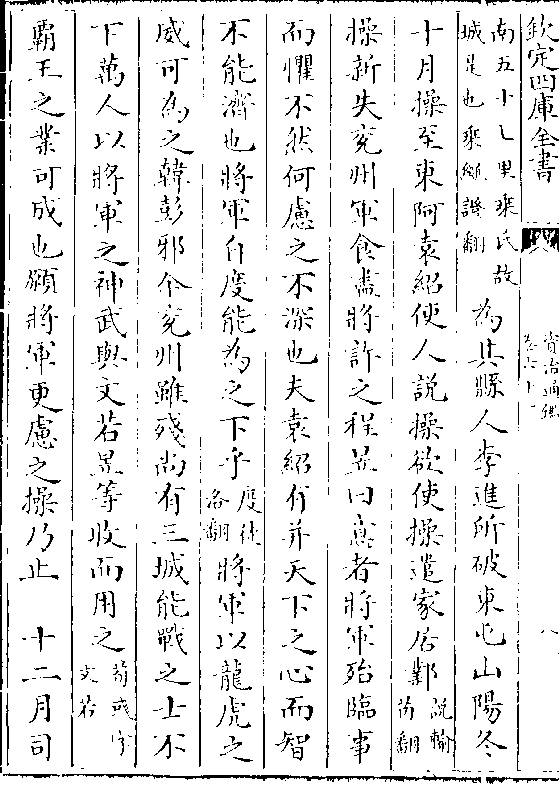 欽定四庫全書
資治通鑑
八
南五十七里乘氏故
城是也乘繩證翻
為其縣人李進所破東屯山陽冬
十月操至東阿袁紹使人說操欲使操遣家居鄴
說輸
芮翻
操新失兖州軍食盡將許之程昱曰意者將軍殆臨事
而懼不然何慮之不深也夫袁紹有并天下之心而智
不能濟也將軍自度能為之下乎
度徒
洛翻
將軍以龍虎之
威可為之韓彭邪今兖州雖殘尚有三城能戰之士不
下萬人以將軍之神武與文若昱等收而用之
荀彧字
文若
霸王之業可成也願將軍更慮之操乃止　十二月司